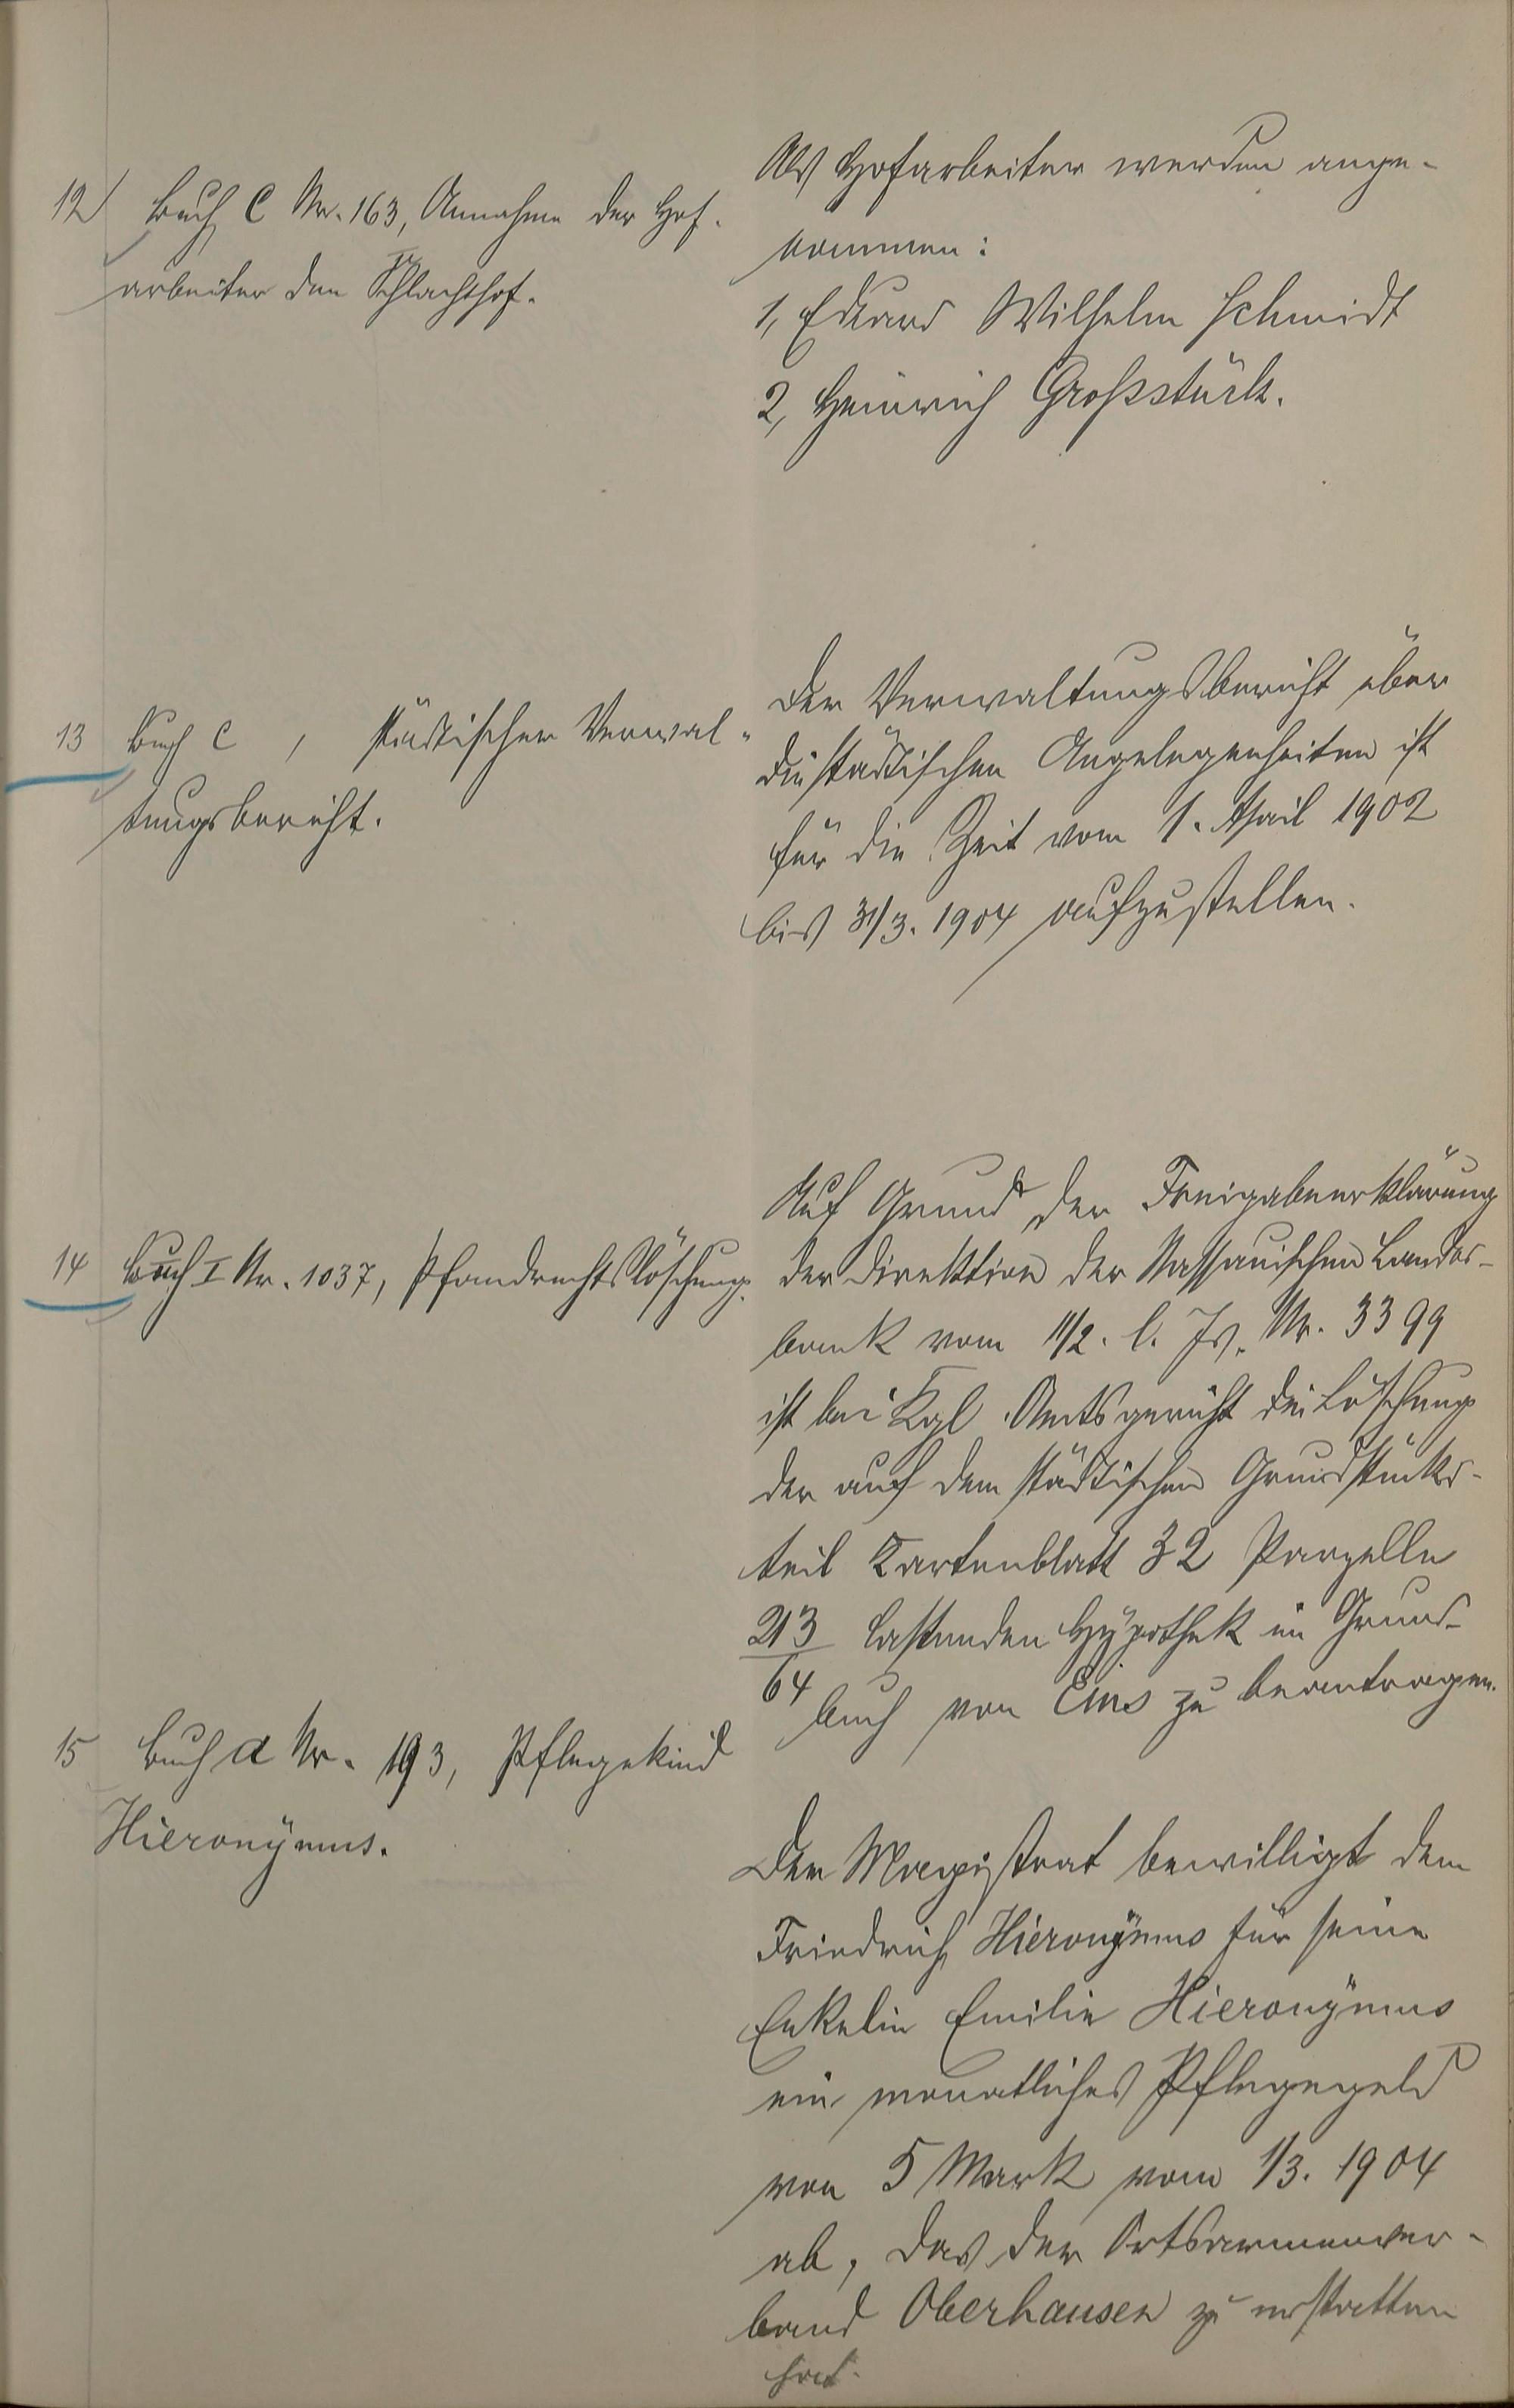 12 Buch C Nr. 163, Annahme der Hof-
arbeiter den Schlachthof.
Als Hofarbeiter werden ange-
nommen:
1, Eduard Wilhelm Schmidt
2, Heinrich Großstück.
13 Buch C , städtischer Verwal-
tungsbericht.
Der Verwaltungsbericht über
die städtischen Angelegenheiten ist
für die Zeit vom 1. April 1902
bis 31/3. 1904 aufzustellen.
14 Buch I Nr. 1037, Pfandrechtslöschung.
Auf Grund der Freigabeerklärung
der Direktion der Nassauischen Landes-
bank vom 11/2. l. Js. Nr. 3399
ist bei Kgl. Amtsgericht die Löschung
der auf dem städtischen Grundstücks-
teil Kartenblatt 32 Parzelle
213/64 lastenden Hypothek im Grund-
buch von Ems zu beantragen.
15 Buch a Nr. 193, Pflegekind
Hieronÿmus.
Der Magistrat bewilligt dem
Friedrich Hieronÿmus für seine
Enkelin Emilie Hieronÿmus
ein monatliches Pflegegeld
von 5 Mark vom 1/3. 1904
ab, das der Ortsarmenver-
band Oberhausen zu erstatten
hat.